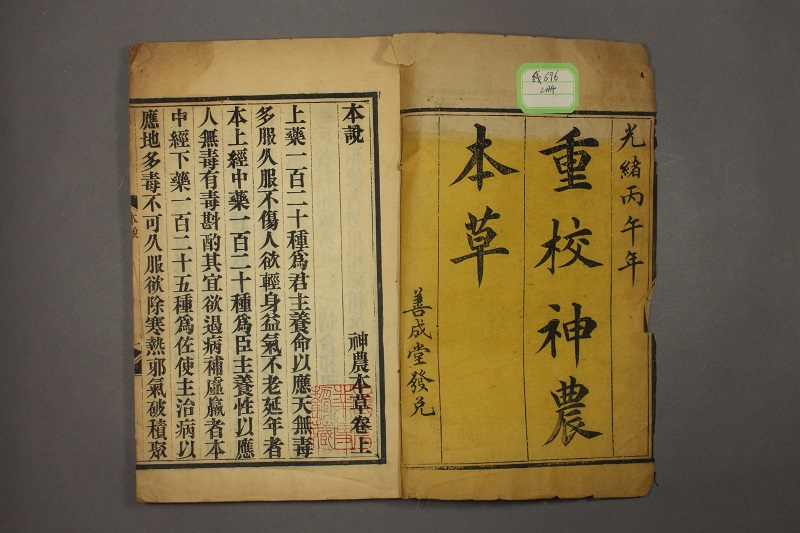 光緒丙午年
重校神農
本草
善成堂發兌
线696
2册
本說
神農本草卷上
上藥一百二十種爲君主養命以應天無毒
多服久服不傷人欲輕身益氣不老延年者
本上經中藥一百二十種爲臣主養性以應
人無毒有毒斟酌其宜欲遏病補虛羸者本
中經下藥一百二十五種爲佐使主治病以
應地多毒不可久服欲除寒熱邪氣破積聚
本說
一